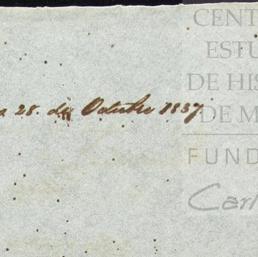 CENT
ESTU
DE HIS
DE M
28. de Octubre 1837
FUND
Carl